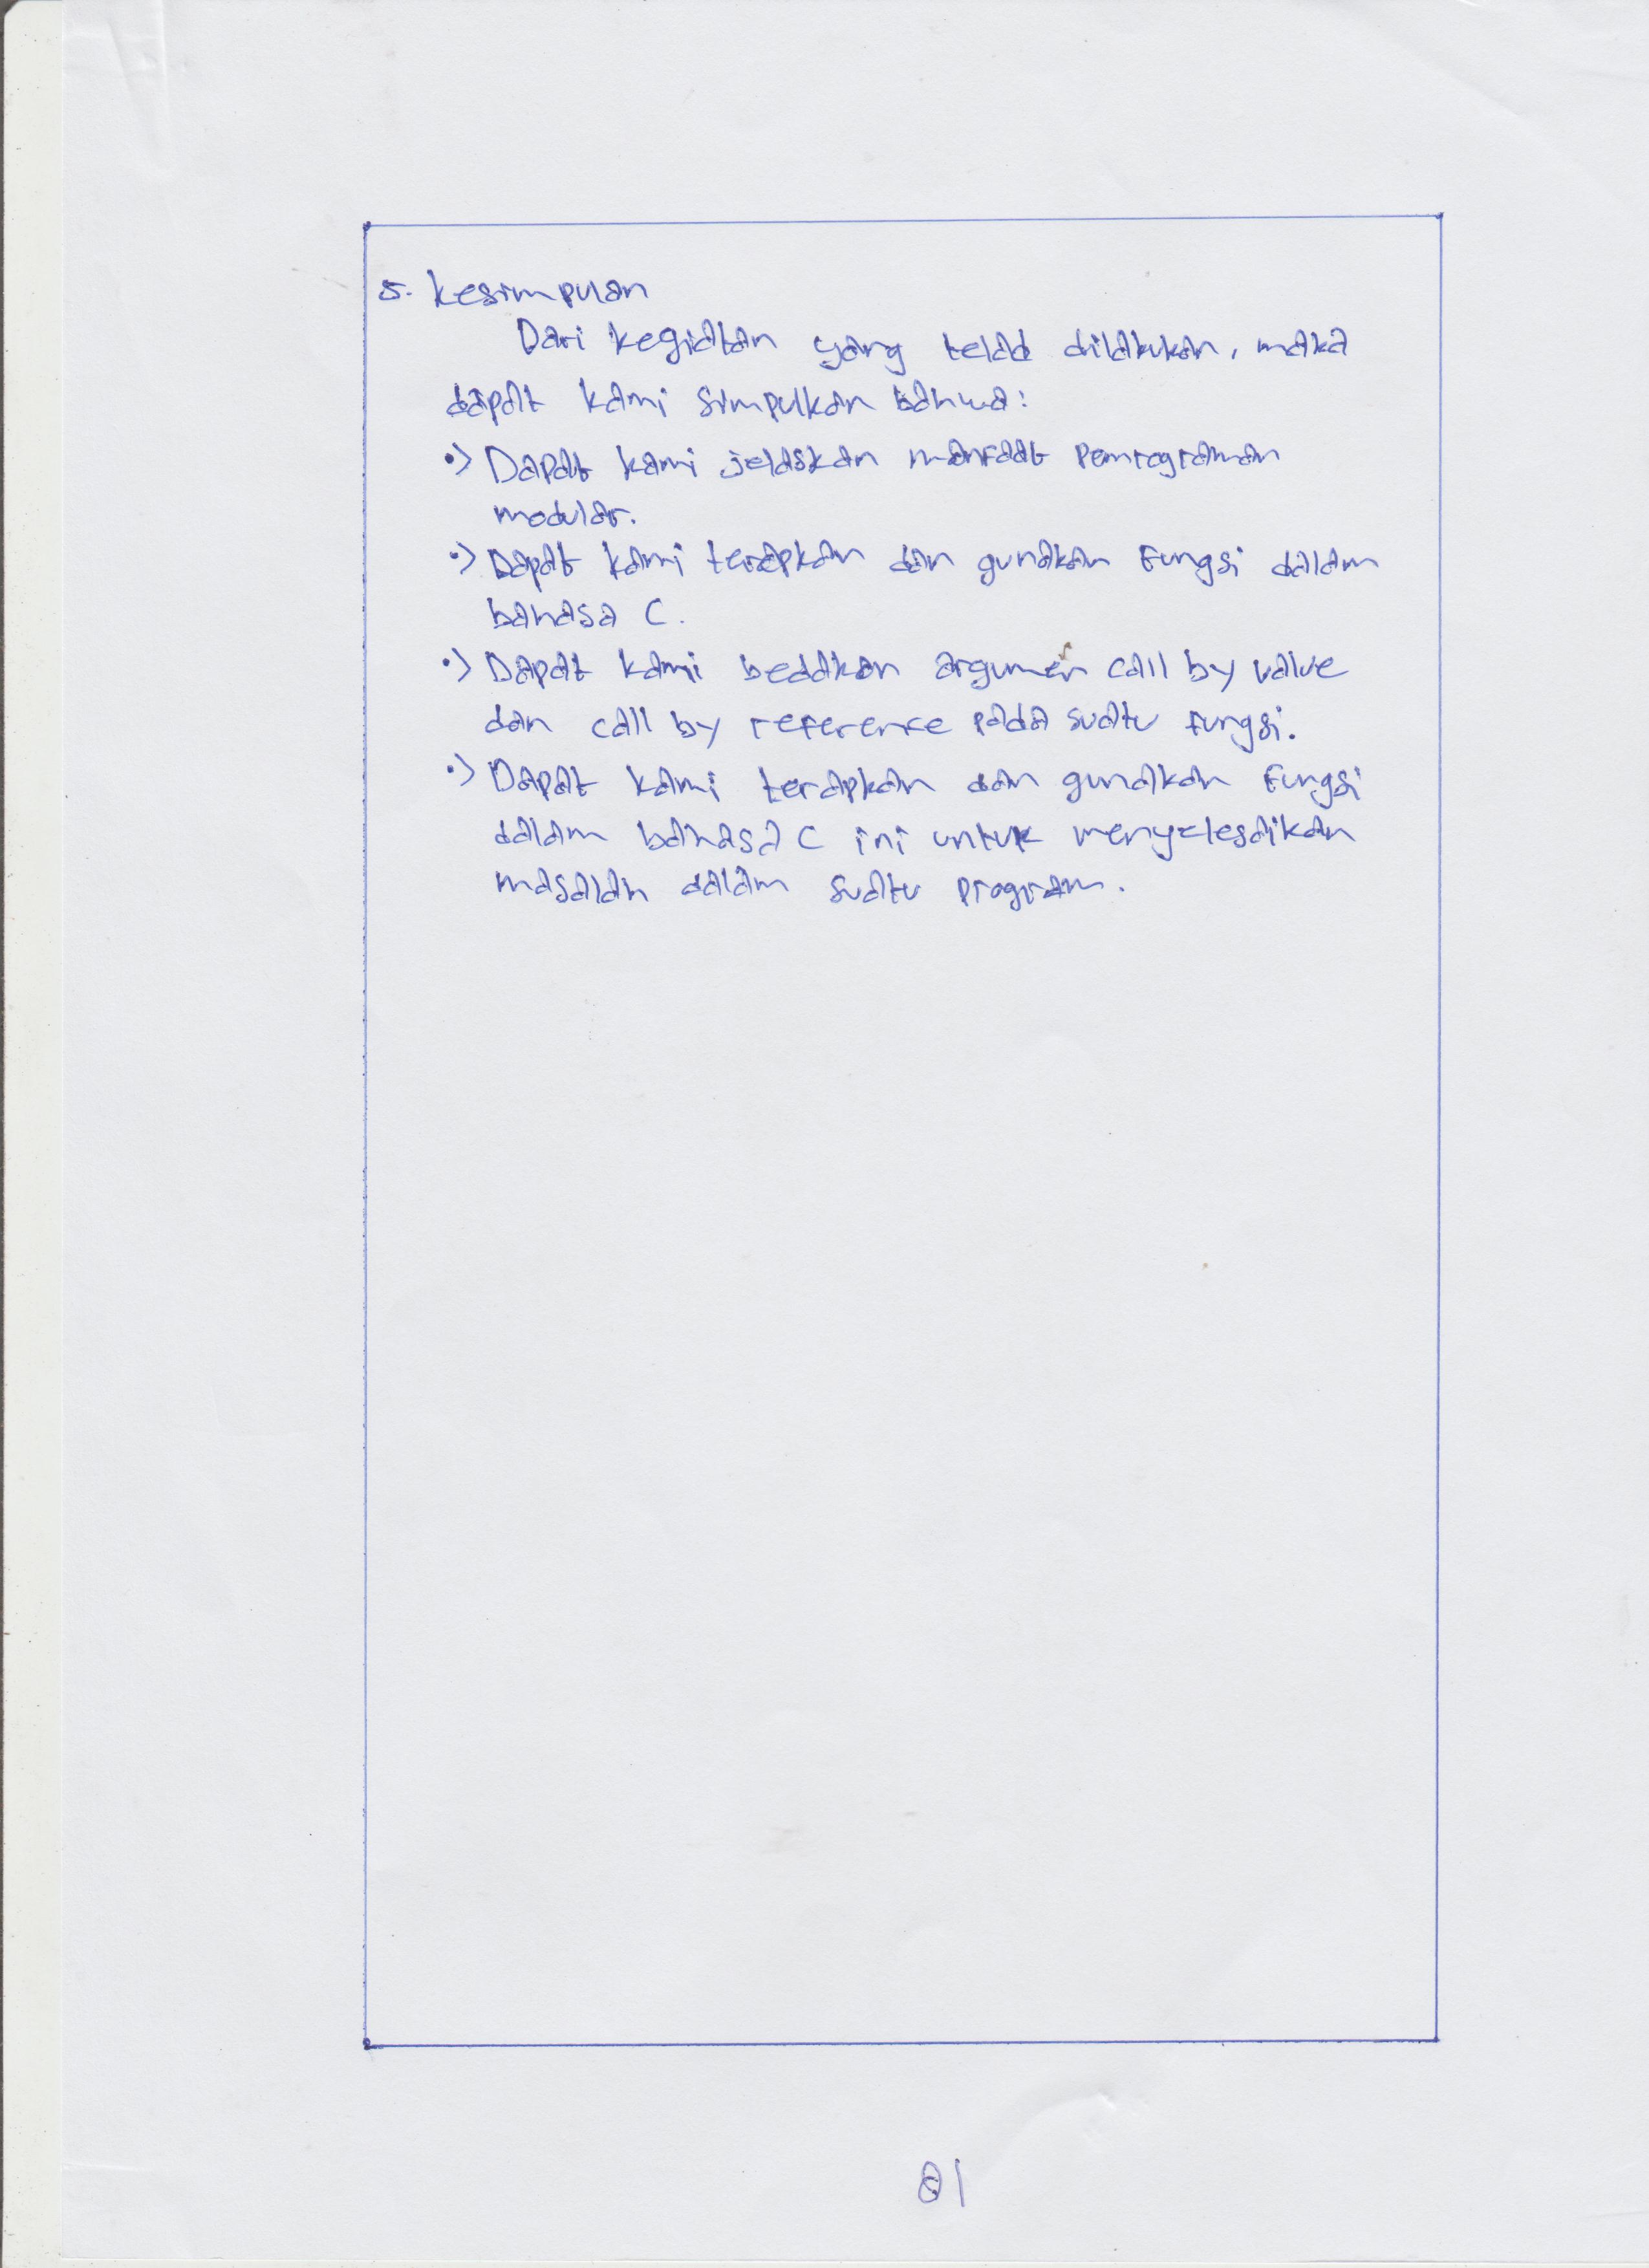 5. Kesimpulan
Dari kegiatan yang telad dilakukan, maka
dapat kami simpulkan bahwa:
•> Dapat kami jelaskan manfaat Pemrograman
modular.
•> Dapat kami terapkan dan gunakan Fungsi dalam
bahasa C.
•> Dapat kami bedakan argumen call by value
dan call by reference pada suatu fungsi.
•> Dapat kami terapkan dan gunakan Fungsi
dalam bahasa C ini untuk menyelesaikan
masalah dalam suatu program.